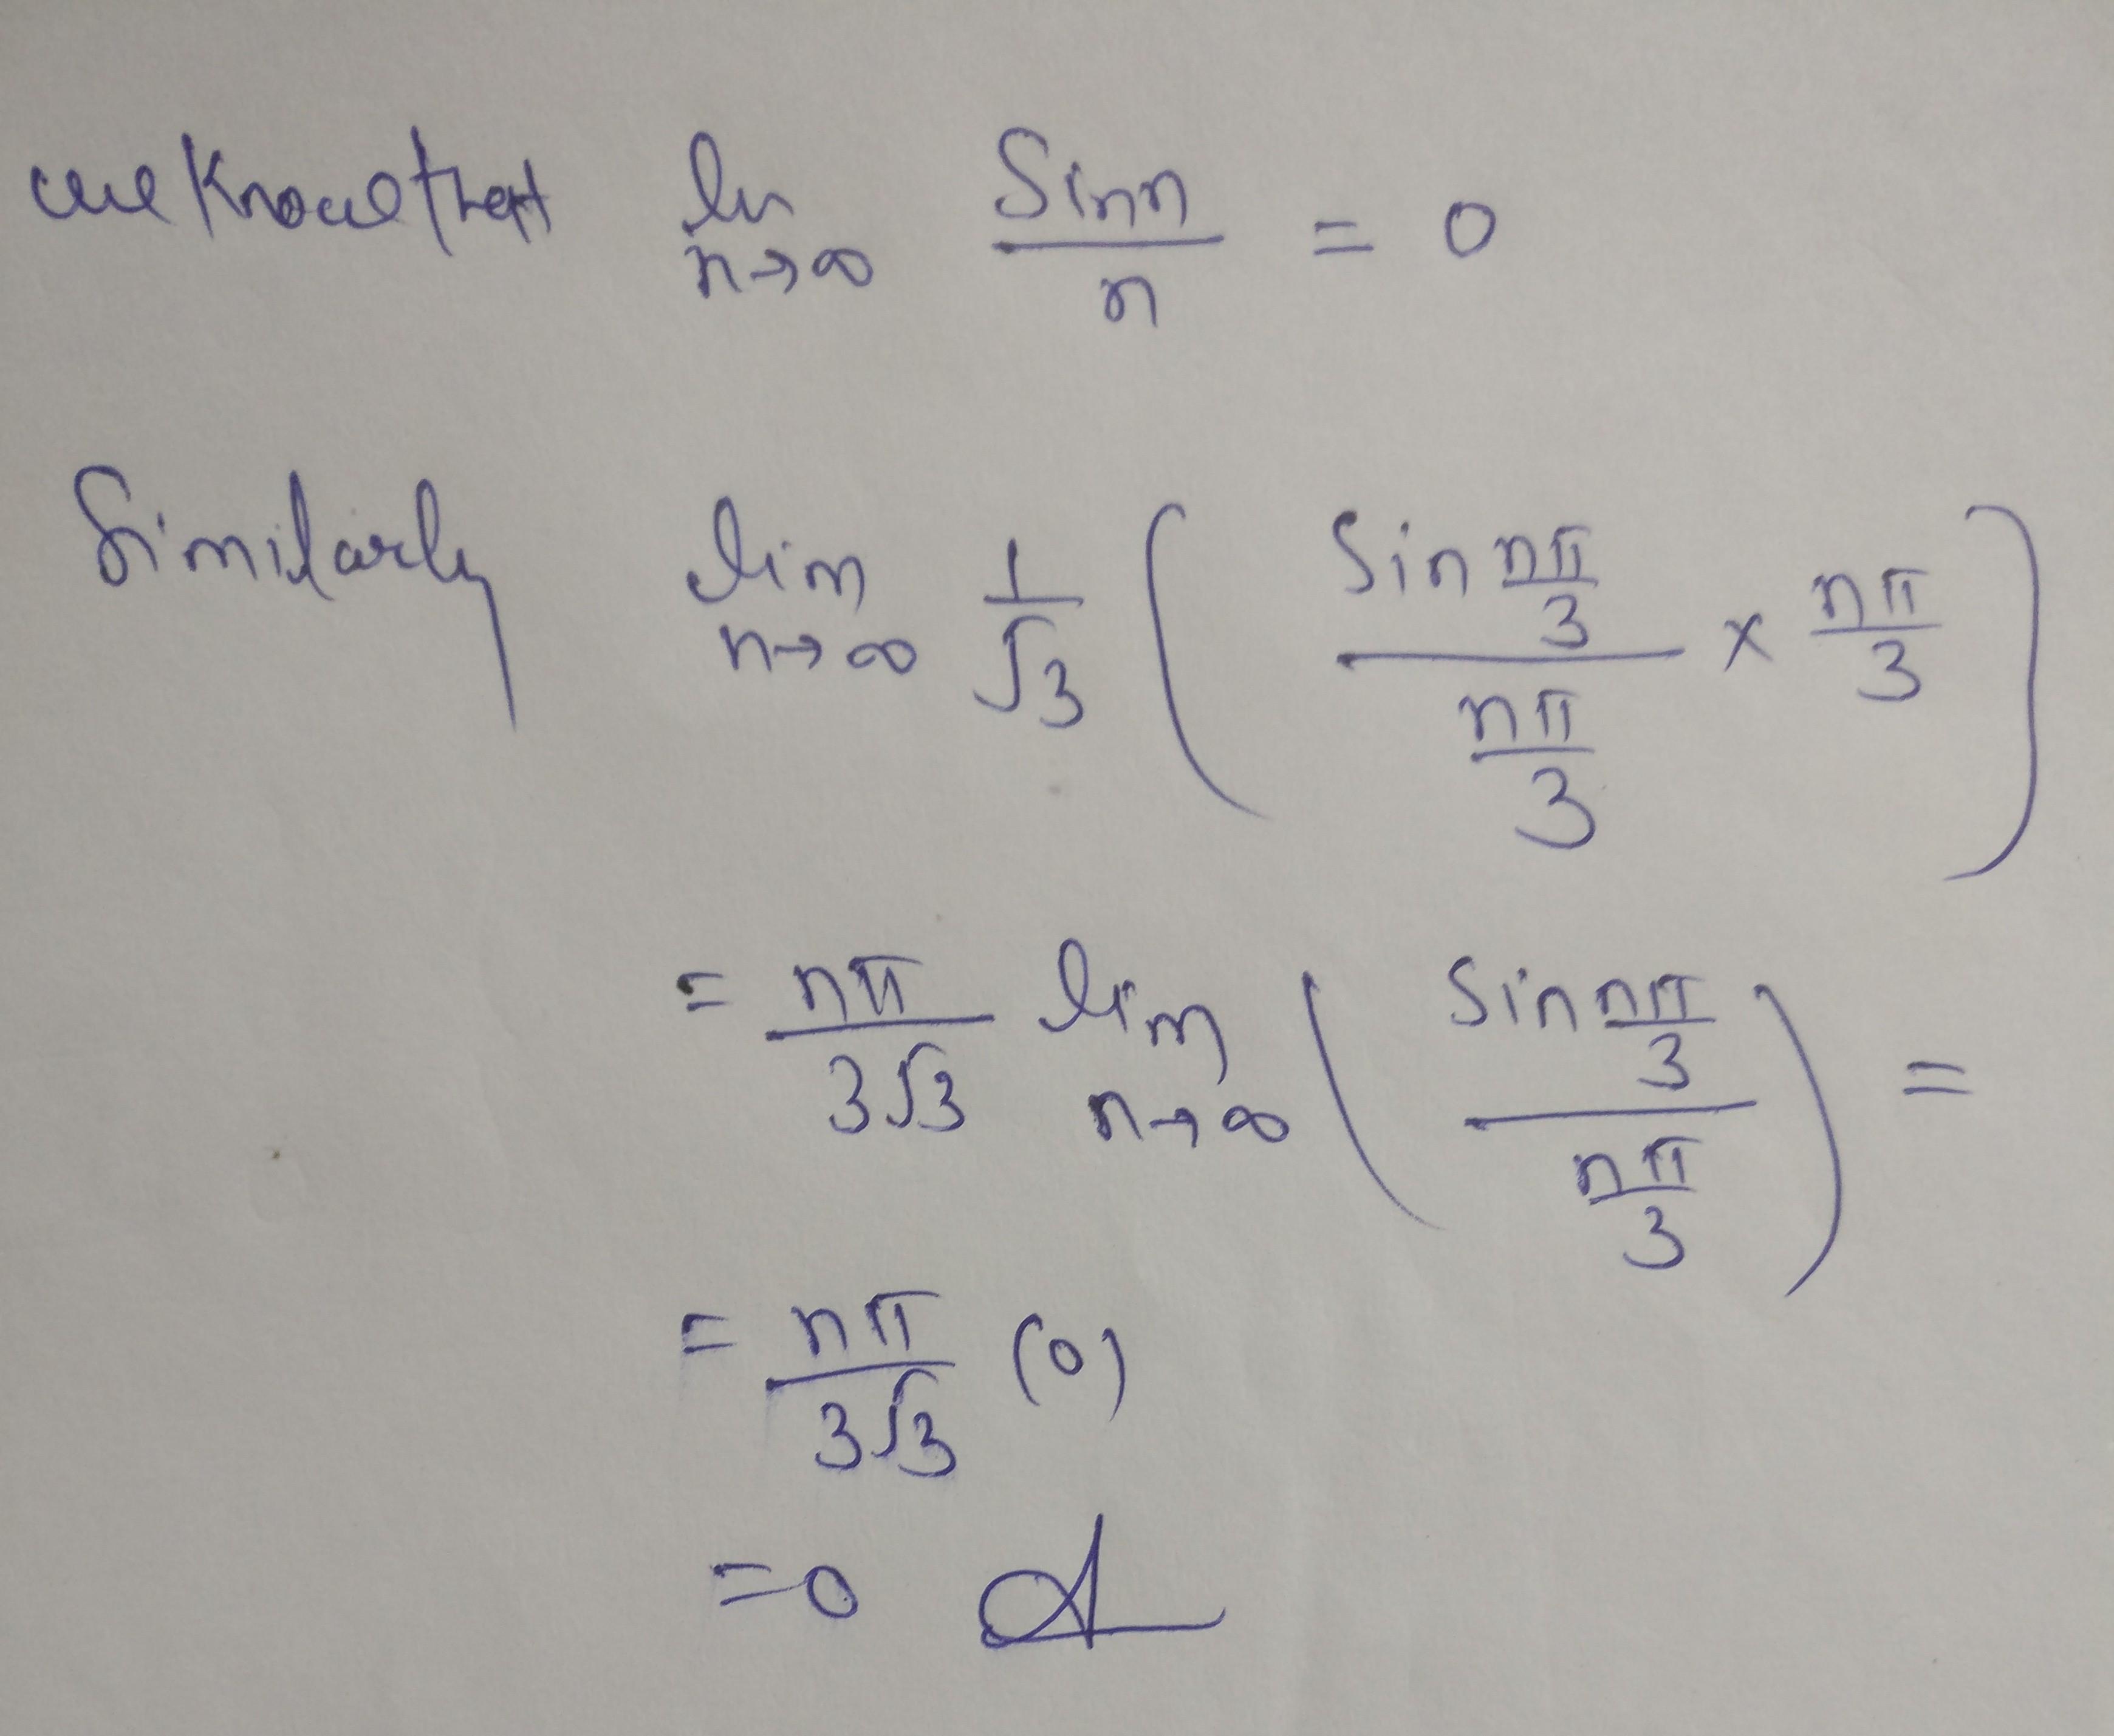 we know that lim n→∞ Sin n / n = 0
Similarly lim n→∞ 1/√3 ( Sin nπ/3 / nπ/3 × nπ/3 )
= nπ/3√3 lim n→∞ ( Sin nπ/3 / nπ/3 ) =
= nπ/3√3 (0)
= 0